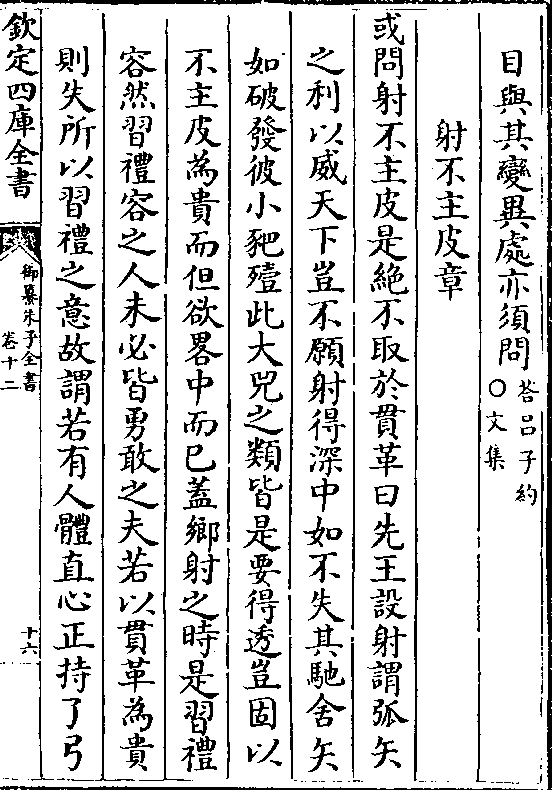 目與其變異處亦須問答呂子約○文集
射不主皮章
或問射不主皮是絶不取於貫革曰先王設射謂弧矢
之利以威天下豈不願射得深中如不失其馳舍矢
如破發彼小豝殪此大兕之類皆是要得透豈固以
不主皮為貴而但欲畧中而已蓋鄉射之時是習禮
容然習禮容之人未必皆勇敢之夫若以貫革為貴
則失所以習禮之意故謂若有人體直心正持了弓
欽定四庫全書
御纂朱子全書
卷十二
十六